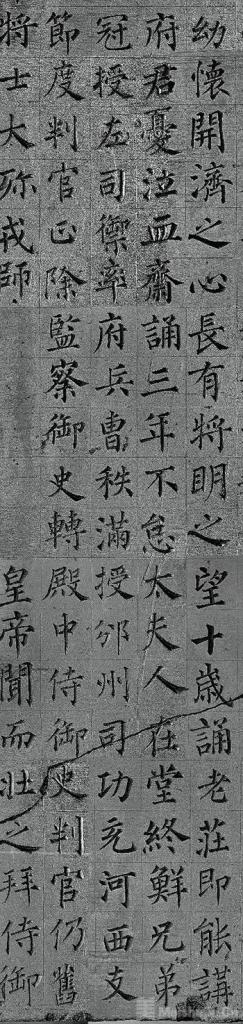 幼懷開濟之心長有將明之望十歲誦老莊即能講
府君憂泣血齋誦三年不怠太夫人在堂終鮮兄弟
冠授左司禦率府兵曹秩滿授邠州司功充河西支
節度判官正除監察御史轉殿中侍御史判官仍舊
將士大殄戎師皇帝聞而壯之拜侍御